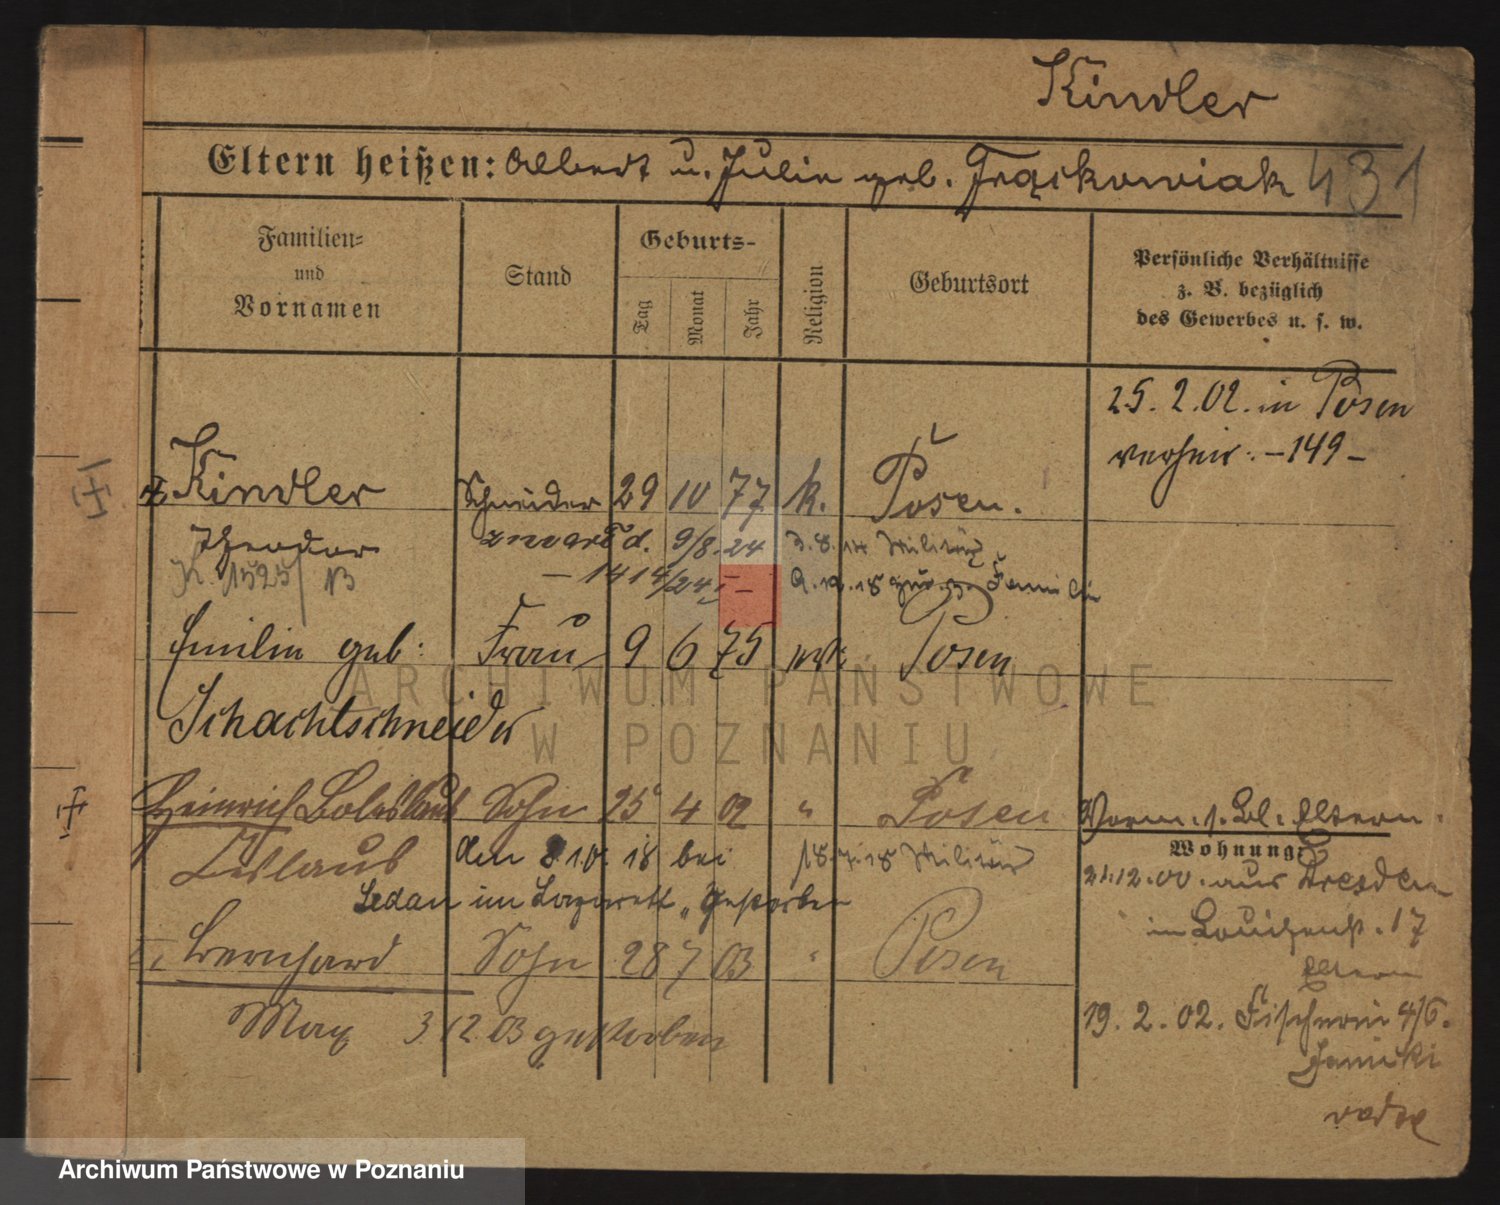 Kindler
Eltern heißen: Albert u. Julie geb. Frąckowiak 431
Familien=
und
Vornamen
Stand
Geburts-
Tag
Monat
Jahr
Religion
Geburtsort
Persönliche Verhältnisse
z. B. bezüglich
des Gewerbes u. s. w.
25. 2. 02. in Posen
verheir. – 149 –
Kindler Schneider 29 10 77 k. Posen.
Theodor 9/8. 24 3. 8. 14 Militär
– 1414/24 – 9. 12. 18 zur Familie
Emilie geb: Frau 9 6 75 Posen
Schachtschneider
Heinrich Boleslaus Sohn 25 4 02 " Posen
Vorm. s. Bl. Eltern.
Wohnung:
Leslaus den 8. 10. 18 bei 18. 7. 18 Militär
21. 12. 00. aus Dresden
Sedan im Lazarett gestorben
in Louisenst. 17
Bernhard Sohn 28 7 03 " Posen
Eltern
Max 3 12. 03 gestorben
19. 2. 02. Fischerei 4/6.
Janicki
ARCHIWUM PAŃSTWOWE
W POZNANIU
Archiwum Państwowe w Poznaniu